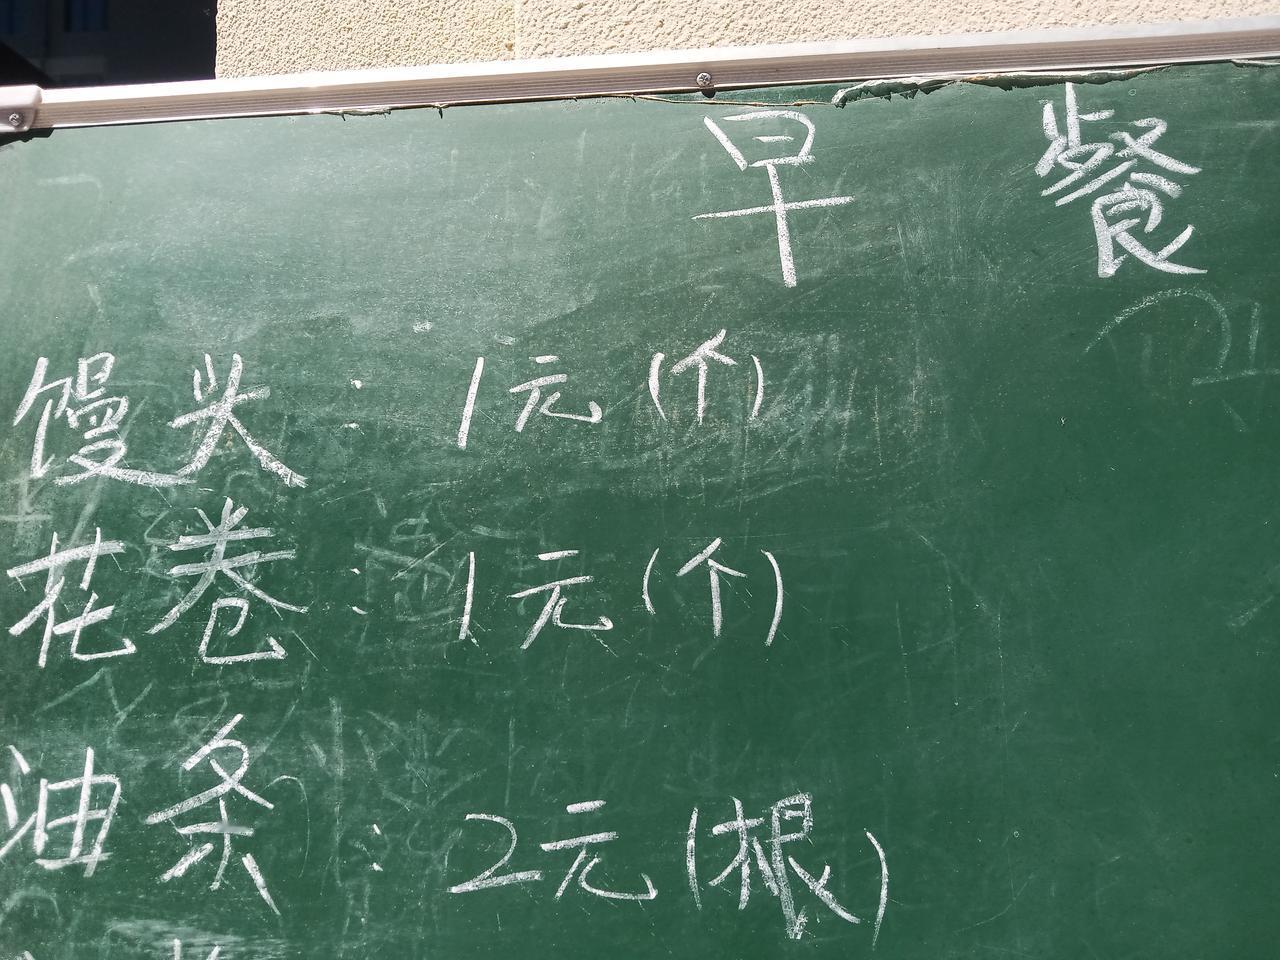 早 餐
馒头：1元（个）
花卷：1元（个）
油条：2元（根）